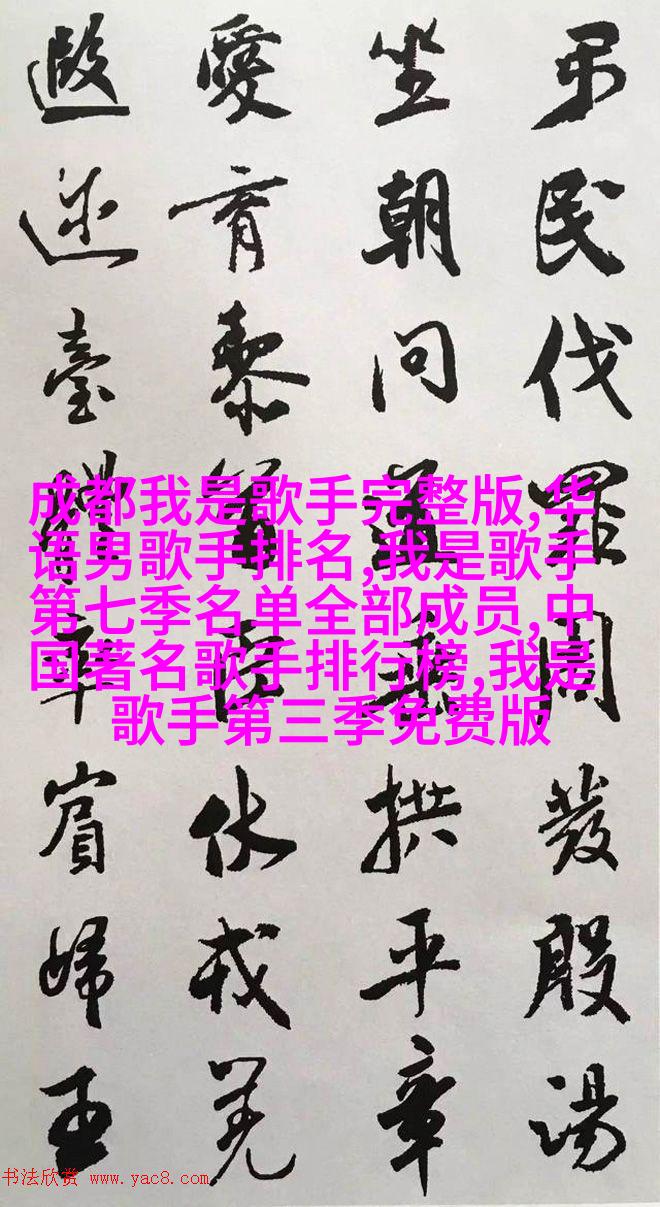 弔民伐罪周發殷湯
坐朝問道垂拱平章
愛育黎首臣伏戎羌
遐邇壹體率賓歸王
成都我是歌手完整版,华
语男歌手排名,我是歌手
第七季名单全部成员,中
国著名歌手排行榜,我是
歌手第三季免费版
书法欣赏 www.yac8.com